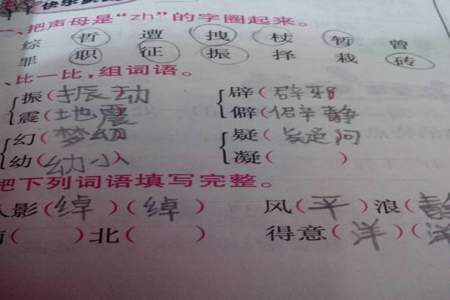 、把声母是“zh”的字圈起来。
综 哲 遭 拽 杖 暂 曾
罪 职 征 振 择 栽 砖
、比一比,组词语。
振(振动) 辟(辟邪)
震(地震) 僻(僻静)
幻(梦幼) 疑(疑问)
幼(幼小) 凝( )
把下列词语填写完整。
人影(绰)(绰) 风(平)浪(静
( )北( ) 得意(洋)(洋